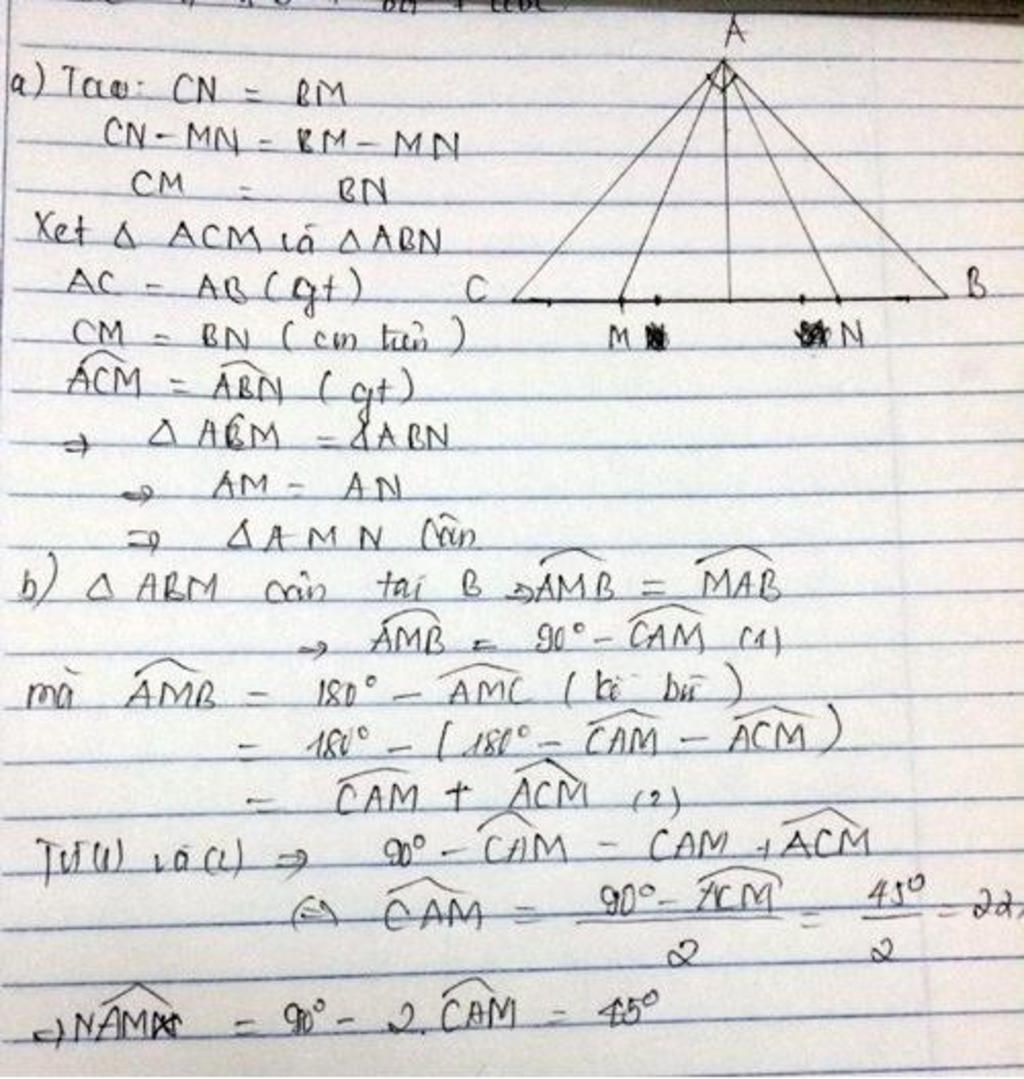 A
a) Ta có: CN = BM
CN - MN = BM - MN
CM = BN
Xét △ ACM và △ ABN
AC = AB (gt)
C B
CM = BN (cm trên)
M N
ACM = ABN (gt)
⇒ △ ACM = △ ABN
⇒ AM = AN
⇒ △ AMN cân
b) △ ABM cân tại B ⇒ AMB = MAB
⇒ AMB = 90° - CAM (1)
mà AMB = 180° - AMC (kề bù)
= 180° - (180° - CAM - ACM)
= CAM + ACM (2)
Từ (1) và (2) ⇒ 90° - CAM = CAM + ACM
⇔ CAM = 90° - ACM / 2 = 45° / 2 = 22,
⇒ NAM = 90° - 2. CAM = 45°